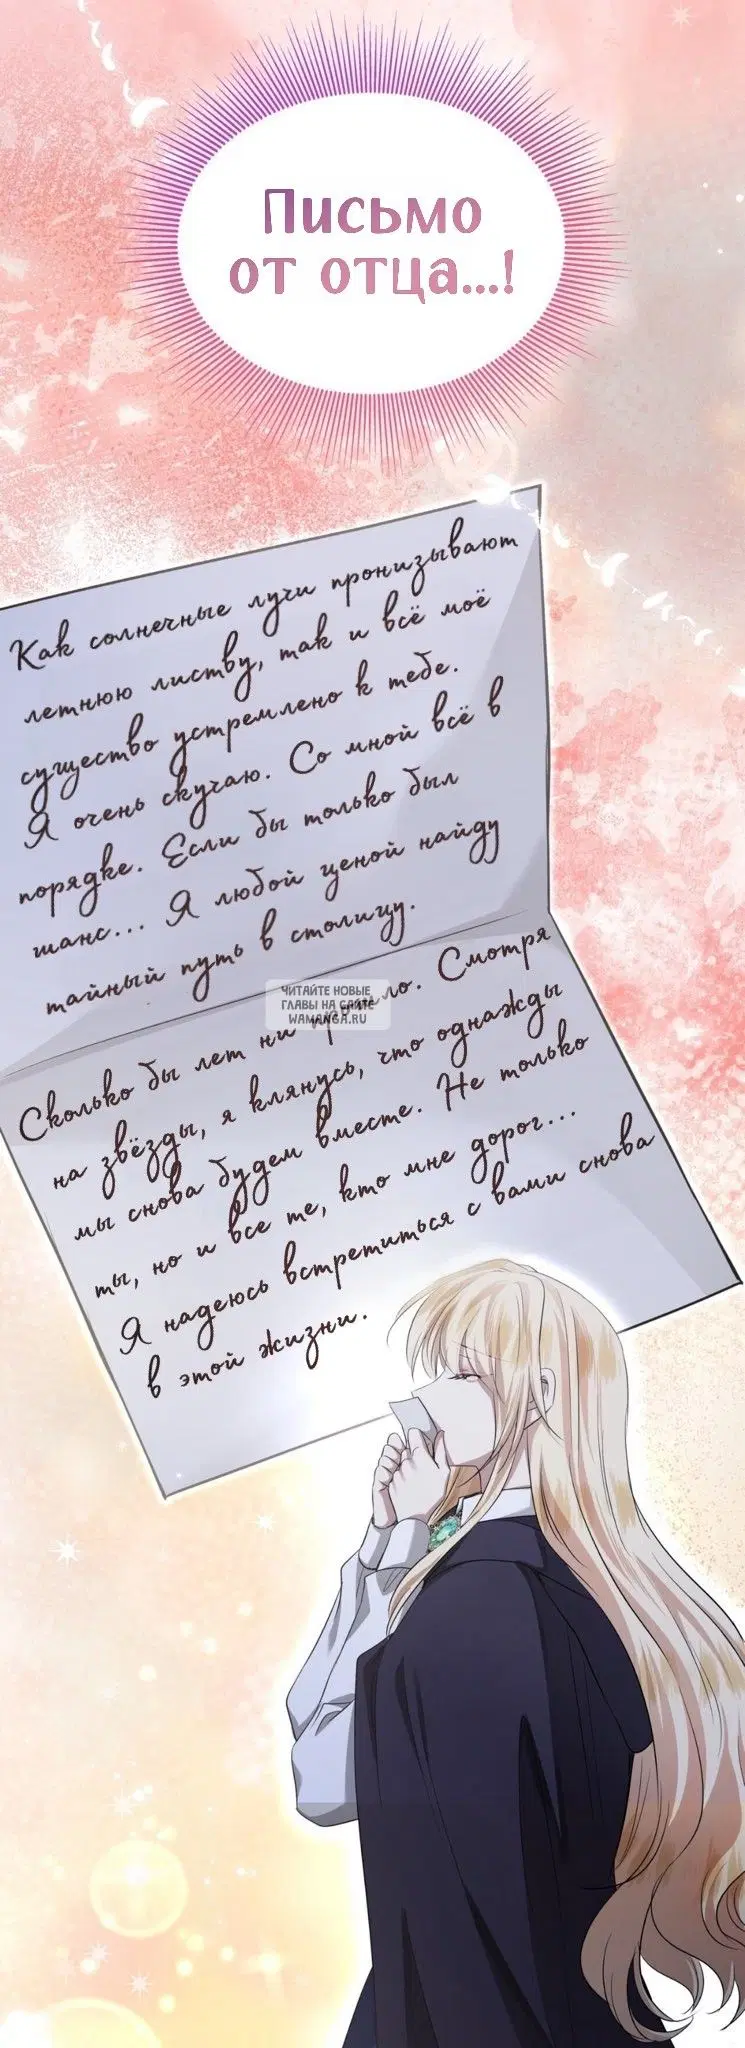 Письмо
от отца...!
Как солнечные лучи пронизывают
летнюю листву, так и всё моё
существо устремлено к тебе.
Я очень скучаю. Со мной всё в
порядке. Если бы только был
шанс... Я любой ценой найду
тайный путь в столицу.
ЧИТАЙТЕ НОВЫЕ
ГЛАВЫ НА САЙТЕ
WAMANGA.RU
Сколько бы лет ни прошло. Смотря
на звёзды, я клянусь, что однажды
мы снова будем вместе. Не только
ты, но и все те, кто мне дорог...
Я надеюсь встретиться с вами снова
в этой жизни.